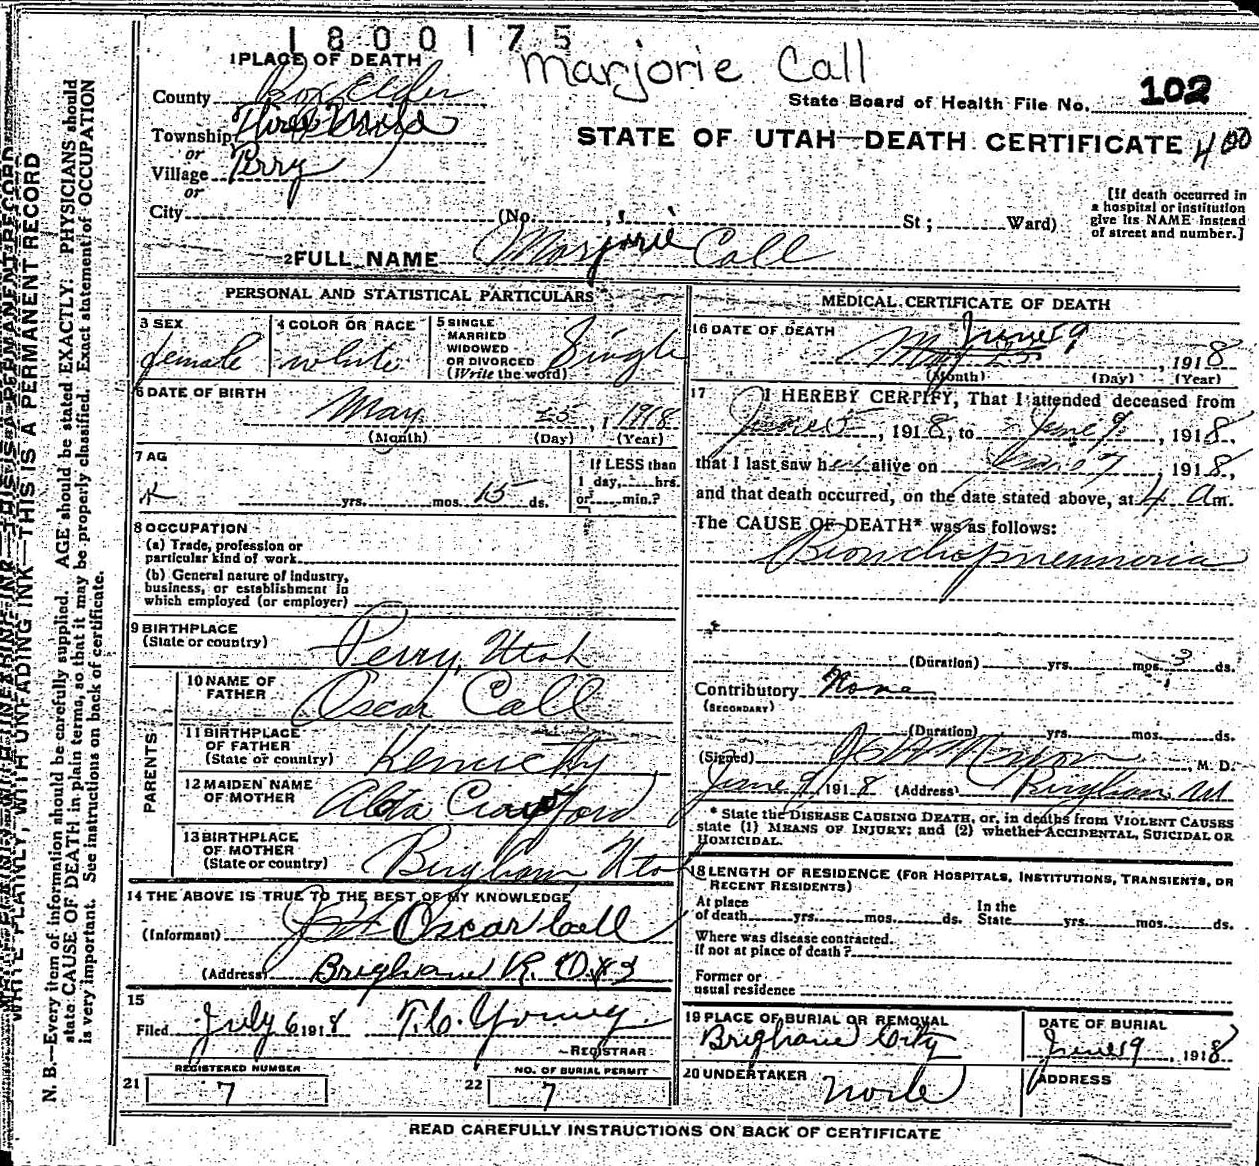 1800175
Marjorie Call
1 PLACE OF DEATH
County Box Elder
State Board of Health File No. 102
Township Three Mile
or
STATE OF UTAH—DEATH CERTIFICATE 400
Village Perry
or
City (No. St; Ward)
[If death occurred in a hospital or institution give its NAME instead of street and number.]
2 FULL NAME Marjorie Call
PERSONAL AND STATISTICAL PARTICULARS
3 SEX female
4 COLOR OR RACE white
5 SINGLE MARRIED WIDOWED OR DIVORCED (Write the word) Single
6 DATE OF BIRTH May 25, 1918
(Month) (Day) (Year)
7 AG
yrs. mos. 15 ds.
If LESS than 1 day, hrs. or min.?
8 OCCUPATION
(a) Trade, profession or
particular kind of work
(b) General nature of industry,
business, or establishment in
which employed (or employer)
9 BIRTHPLACE
(State or country) Perry, Utah
PARENTS
10 NAME OF FATHER Oscar Call
11 BIRTHPLACE OF FATHER (State or country) Kentucky
12 MAIDEN NAME OF MOTHER Alda Crawford
13 BIRTHPLACE OF MOTHER (State or country) Brigham Utah
14 THE ABOVE IS TRUE TO THE BEST OF MY KNOWLEDGE
(Informant) Oscar Call
(Address) Brigham R. D. #3
15
Filed July 6 1918 T. C. Young
REGISTRAR
REGISTERED NUMBER
21 7
NO. OF BURIAL PERMIT
22 7
MEDICAL CERTIFICATE OF DEATH
16 DATE OF DEATH
June 9
May 25, 1918
(Month) (Day) (Year)
17 I HEREBY CERTIFY, That I attended deceased from
June 5, 1918, to June 9, 1918,
that I last saw her alive on June 7, 1918,
and that death occurred, on the date stated above, at 4 am.
The CAUSE OF DEATH* was as follows:
Bronchopneumonia
(Duration) yrs. mos. 3 ds.
Contributory None
(SECONDARY)
(Duration) yrs. mos. ds.
(Signed) M. D.
June 9, 1918 (Address) Brigham Ut
* State the DISEASE CAUSING DEATH, or, in deaths from VIOLENT CAUSES
state (1) MEANS OF INJURY; and (2) whether ACCIDENTAL, SUICIDAL OR
HOMICIDAL.
18 LENGTH OF RESIDENCE (FOR HOSPITALS, INSTITUTIONS, TRANSIENTS, OR
RECENT RESIDENTS)
At place of death yrs. mos. ds. In the State yrs. mos. ds.
Where was disease contracted.
If not at place of death?
Former or
usual residence
19 PLACE OF BURIAL OR REMOVAL
Brigham City
DATE OF BURIAL
June 9, 1918
20 UNDERTAKER None
ADDRESS
READ CAREFULLY INSTRUCTIONS ON BACK OF CERTIFICATE
WRITE PLAINLY, WITH UNFADING INK—THIS IS A PERMANENT RECORD
N. B.—Every item of information should be carefully supplied. AGE should be stated EXACTLY. PHYSICIANS should
state CAUSE OF DEATH in plain terms, so that it may be properly classified. Exact statement of OCCUPATION
is very important. See instructions on back of certificate.